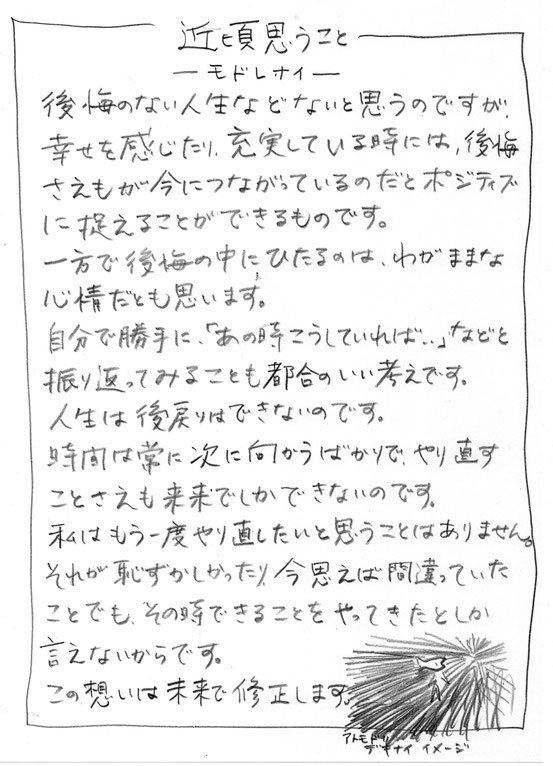 近頃思うこと
―モドレナイ―
後悔のない人生などないと思うのですが、
幸せを感じたり、充実している時には、後悔
さえもが今につながっているのだとポジティブ
に捉えることができるものです。
一方で後悔の中にひたるのは、わがままな
心情だとも思います。
自分で勝手に、「あの時こうしていれば‥」などと
振り返ってみることも都合のいい考えです。
人生は後戻りはできないのです。
時間は常に次に向かうばかりで、やり直す
ことさえも未来でしかできないのです。
私はもう一度やり直したいと思うことはありません。
それが恥ずかしかったり、今思えば間違っていた
ことでも、その時できることをやってきたとしか
言えないからです。
この想いは未来で修正します。
アトモドリ
デキナイ イメージ